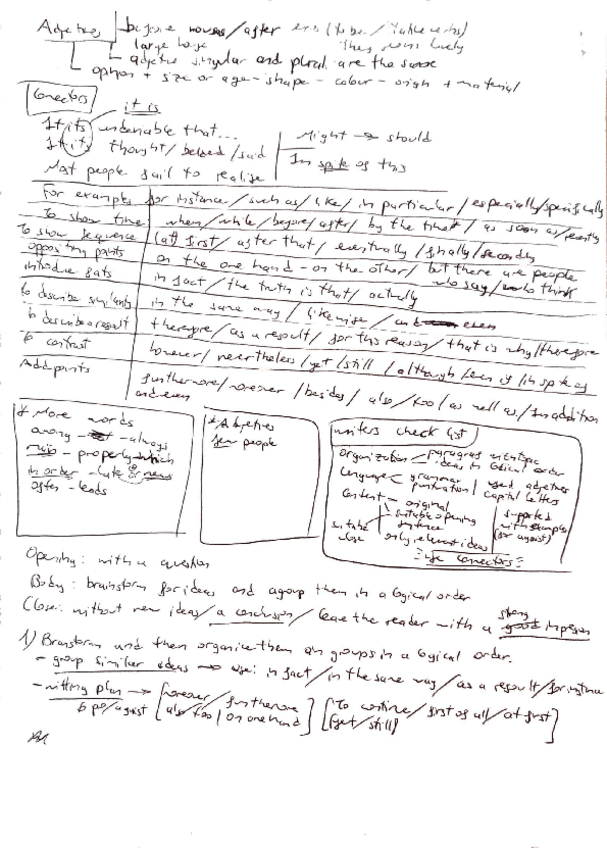 Adjetives before nouses/after verbs (to be / stative verbs)
large house They seem lovely
adjective singular and plural are the same
opinion + size or age - shape - colour - origin + material
Conectors
it is
It its undeniable that...
It its thought/belived/said
Most people fail to realise
Might → should
In spite of this
For example for instance/such as/like/in particular/especially/specifically
To show time when/while/before/after/by the time/as soon as/recently
To show sequence (at) first/after that/eventually/finally/secondly
opposing points on the one hand - on the other/but there are people who say/who think
introduce fats in fact/the truth is that/actually
to describe similarity in the same way/likewise/and even
to describe a result therefore/as a result/for this reason/that is why/therefore
to contrast however/nevertheless/yet/still/although/even if/in spite of
Add points furthermore/moreover/besides/also/too/as well as/In addition
and even
* More words
among - always
- properly - which
in order - late or news
often - leads
* Adjetives
few people
writers check list
Organization paragraf
ideas in logical order
Language grammar used adjetives
puntuation/capital letters
Content - original
suitable opening sentence
only relevant ideas
suitable close
supported with examples (for against)
use conectors
Opening: with a question
Body: brainstorm for ideas and agroup them in a logical order
Close: without new ideas/a conclusion/leave the reader with a strong good impresion
1) Branstorm and then organize them in groups in a logical order.
- group similar ideas → use: in fact/in the same way/as a result/for instance
- writting plan → [moreover/furthermore] [To continue/first of all/at first]
to for/against [also/too/on one hand] [yet/still]